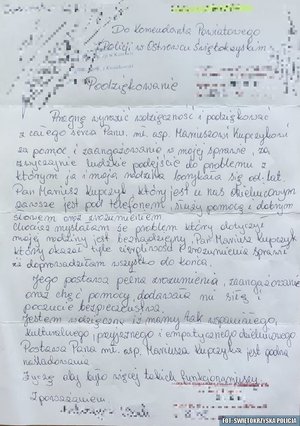 Do Komendanta Powiatowego
Policji w Ostrowcu Świętokrzyskim
Podziękowanie
Pragnę wyrazić wdzięczność i podziękować
z całego serca Panu mł. asp. Mariuszowi Kupczykowi
za pomoc i zaangażowanie w mojej sprawie, za
zwyczajnie ludzkie podejście do problemu z
którym ja i moja rodzina borykała się od lat.
Pan Mariusz Kupczyk, który jest u nas dzielnicowym
zawsze jest pod telefonem, służy pomocą i dobrym
słowem oraz zrozumieniem.
Chociaż myślałam że problem który dotyczy
mojej rodziny jest beznadziejny, Pan Mariusz Kupczyk
który okazał tyle cierpliwości i zrozumienia sprawił
że doprowadziłam wszystko do końca.
Jego postawa pełna zrozumienia, zaangażowania
oraz chęć pomocy dodawała mi siły
poczucie bezpieczeństwa.
Jestem wdzięczna iż mamy tak wspaniałego,
kulturalnego, przyjaznego i empatycznego dzielnicowego
Postawa Pana mł. asp. Mariusza Kupczyka jest godna
naśladowania.
Życzę aby było więcej takich funkcjonariuszy.
Z poważaniem
FOT. ŚWIĘTOKRZYSKA POLICJA